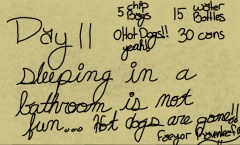 Day 11
5 chip Bags
15 water Bottles
0 Hot Dogs!! yeah!!
30 cans
sleeping in a
bathroom is not
fun... Hot dogs are gone!!